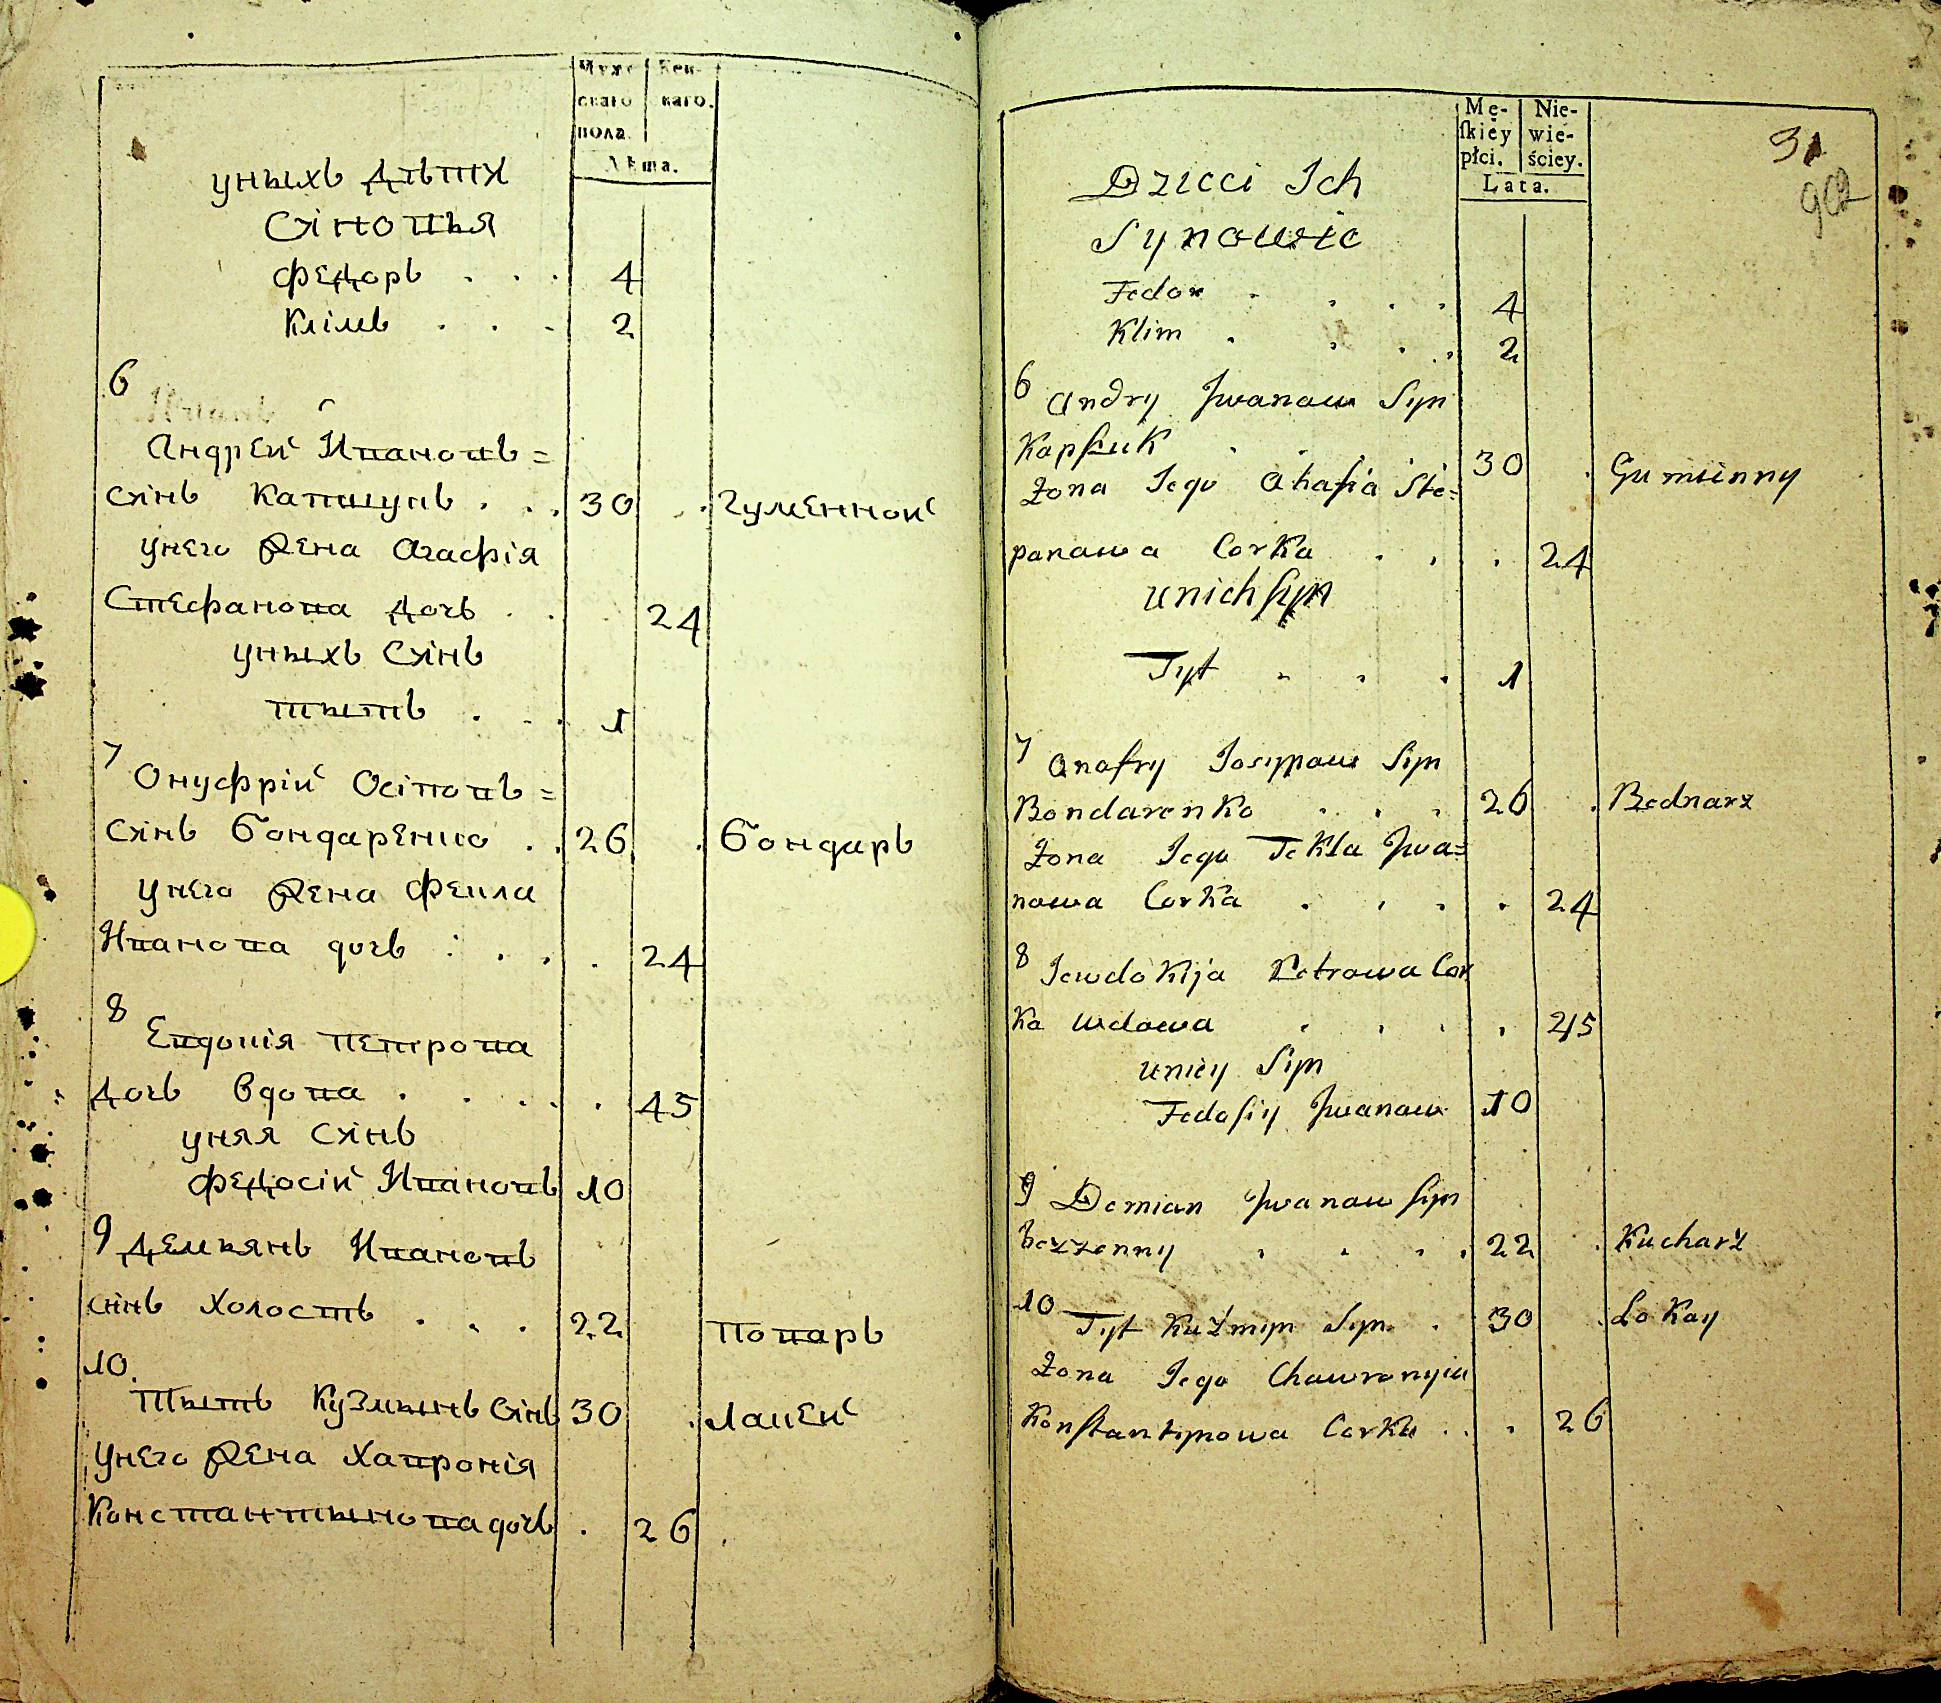 Муже Жен-
скаго скаго.
пола.
Лѣта.
унихъ дѣтѣй
Синовья
Федоръ . . . 4
Клімъ . . . 2
6
Андрей Ивановъ =
синъ Капшукъ . . . 30 . Гуменной
унего жена Агафія
Стефанова дочь . . 24
унихъ Синъ
Титъ . . . 1
7 Онуфрій Осіповъ =
синъ Бондаренко . . 26 . Бондаръ
унего жена Фекла
Иванова дочь : . . . 24
8
Евдокія Петрова
дочь Вдова . . . . . 45
унея Синъ
Федосій Ивановъ 10
9 Демьянъ Ивановъ
синъ Холостъ . . . 22 Поваръ
10.
Титъ Кузминъ Синъ 30 . Лакей
унего жена Хавронія
Константинова дочь . 26 .
Mę- Nie-
ſkiéy wie-
płci. ściey.
Lata.
31
902
Dzieci Ich
Synowie
Fedor . . . . 4
Klim . . . . 2
6 Andry Jwanaw Syn
Kapſzuk . . . . 30 . Gumienny
Żona Jego Ahafia Ste=
panawa Corka . . . 24
unich ſyn
Tyt . . . 1
7 Anafry Josypaw Syn
Bondarenko . . . 26 . Bednarz
Żona Jego Tekla Jwa=
nowa Corka . . . . 24
8 Jewdokija Petrowa Cor
ka wdowa . . . . . 45
uniey Syn
Fedosiy Jwanaw 10
9 Demian Jwanaw ſyn
bezżenny . . . . 22 . Kucharz
10 Tyt Kuźmyn Syn . 30 . Lokay
Żona Jego Chawronyia
Konſtantynowa Corka . . . 26